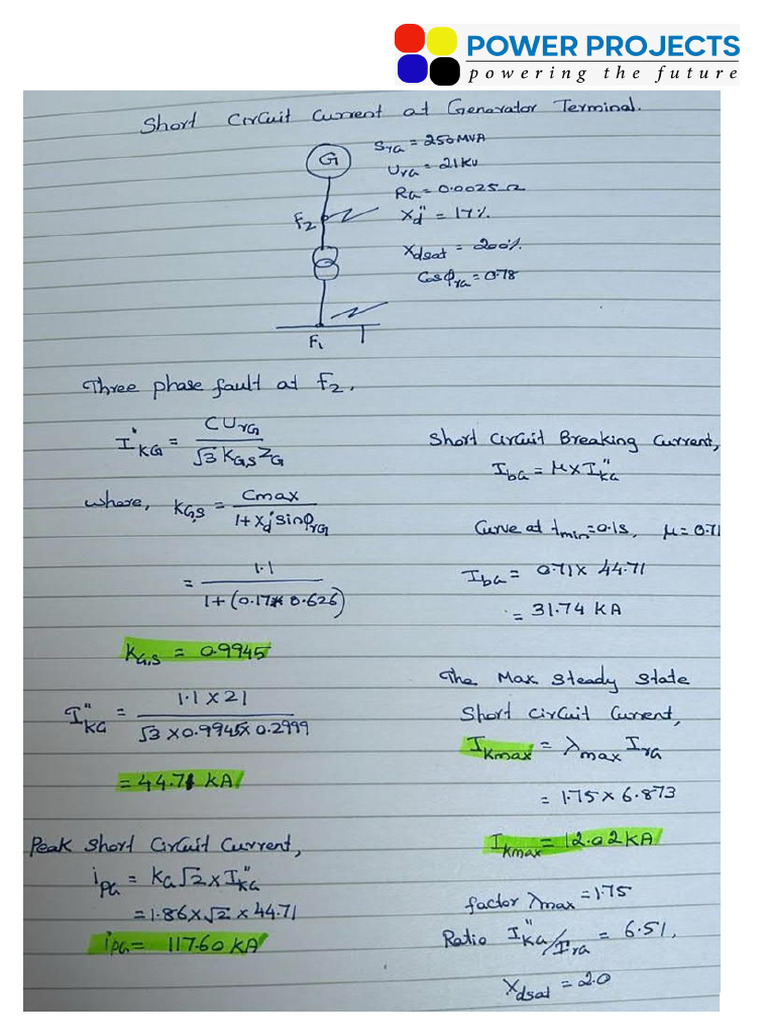 POWER PROJECTS
powering the future
Short Circuit Current at Generator Terminal.
G
SrG = 250MVA
UrG = 21KV
RG = 0.0025Ω
X"d = 17%
Xdsat = 200%.
CosφrG = 0.78
F2
F1
Three phase fault at F2.
I"KG = CUrG / √3 KG,S ZG
where, KG,S = Cmax / 1+X"d sinφrG
= 1.1 / 1+(0.17*0.626)
KG,S = 0.9945
I"KG = 1.1×21 / √3×0.9945×0.2999
= 44.71 KA
Peak Short Circuit Current,
ipG = KG√2×I"KG
= 1.86×√2×44.71
ipG = 117.60 KA
Short Circuit Breaking Current,
IbG = μ×I"KG
Curve at tmin=0.1s, μ=0.71
IbG = 0.71× 44.71
= 31.74 KA
The Max Steady State
Short Circuit Current,
IKmax = λmax IrG
= 1.75×6.873
IKmax = 12.02KA
factor λmax = 1.75
Ratio I"KG/IrG = 6.51,
Xdsat = 2.0